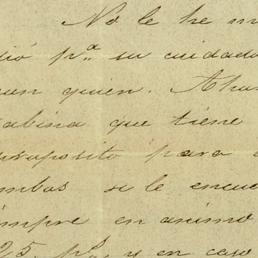 No le he m
dió pª su cuidado
quien. Aha
abina que tiene
proposito para
mbas si le encue
empre en animo
25 ps y en caso